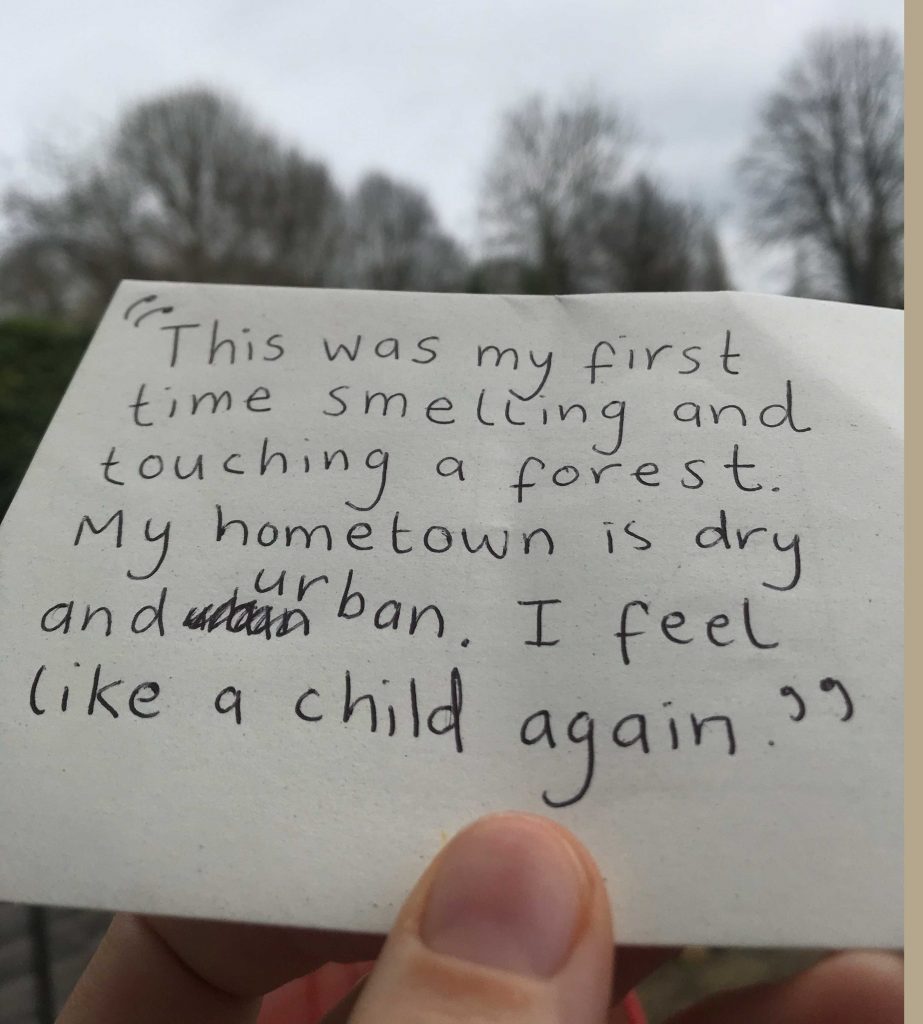 “This was my first
time smelling and
touching a forest.
My hometown is dry
and urban. I feel
like a child again.”